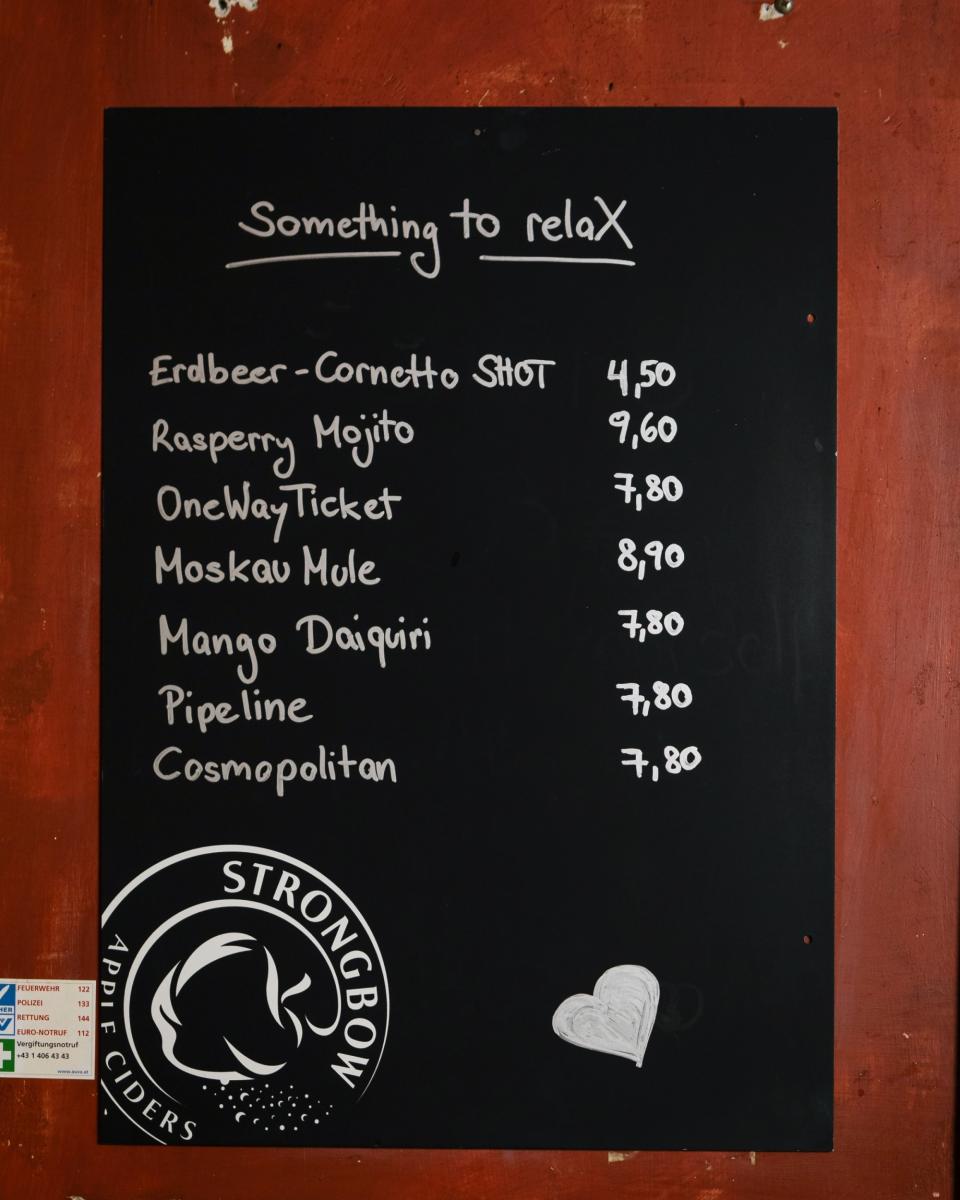 Something to relaX
Erdbeer-Cornetto SHOT 4,50
Rasperry Mojito 9,60
OneWayTicket 7,80
Moskau Mule 8,90
Mango Daiquiri 7,80
Pipeline 7,80
Cosmopolitan 7,80
STRONGBOW
APPLE CIDERS
FEUERWEHR 122
POLIZEI 133
RETTUNG 144
EURO-NOTRUF 112
Vergiftungsnotruf
+43 1 406 43 43
www.auva.at